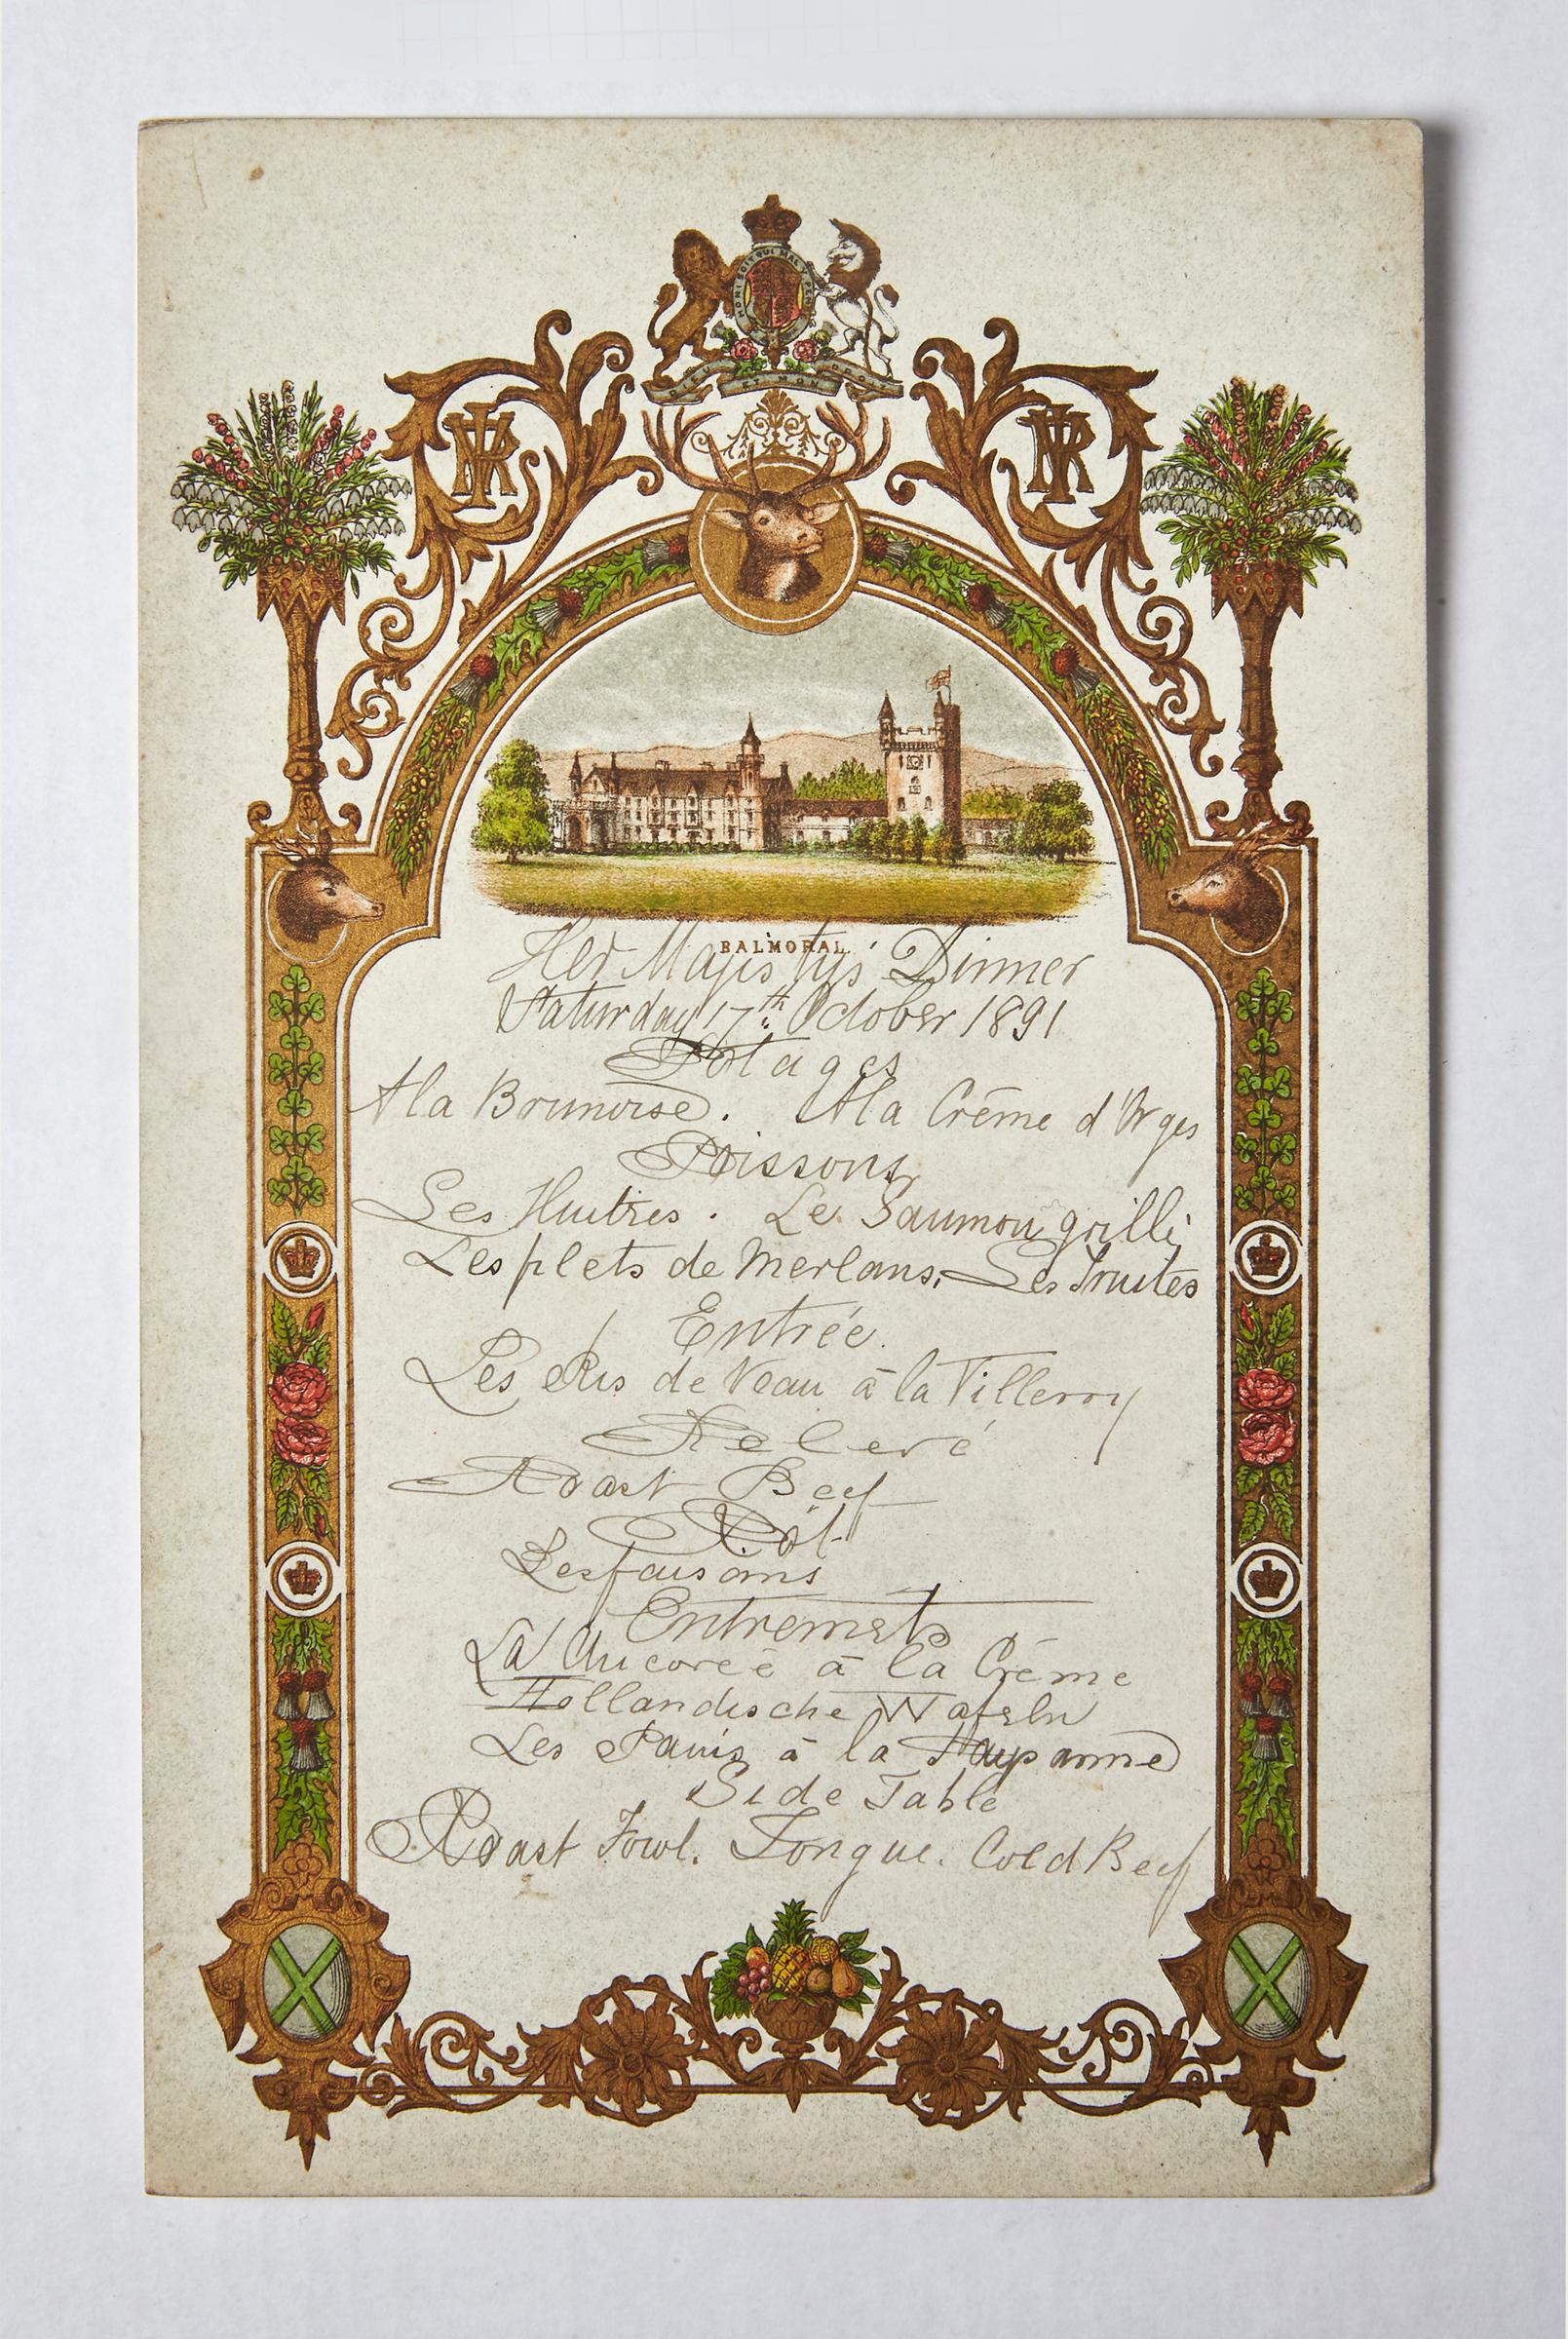 HONI SOIT QUI MAL Y PENSE
DIEU ET MON DROIT
VRI VRI
BALMORAL.
Her Majestys' Dinner
Saturday 17th October 1891
Potages
A la Brunoise. A la Crême d'Orges
Poissons
Les Huitres. Le Saumon grillé
Les filets de Merlans, Les Truites
Entrée.
Les Ris de Veau à la Villeroy
Relevé
Roast Beef
Rôt
Les faisans
Entremets
La Chicoreé à la Crême
Hollandische Waffeln
Les Panis à la Paysanne
Side Table
Roast Fowl. Tongue. Cold Beef